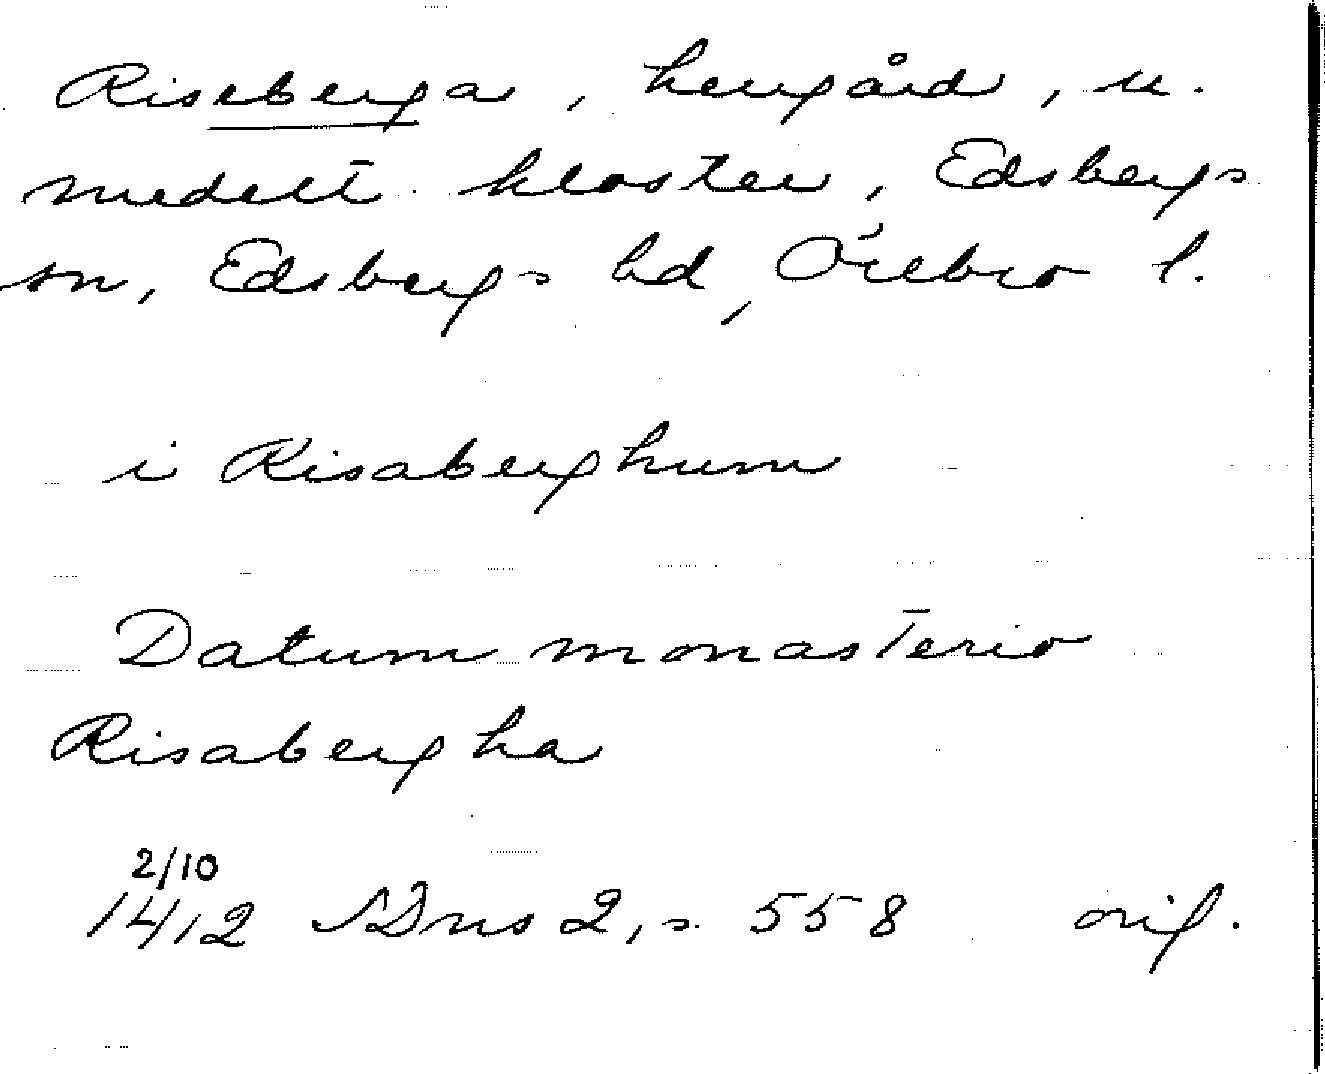 Riseberga, herrgård, u.
medelt. kloster, Edsbergs
sn, Edsbergs hd, Örebro l.
i Risaberghum
Datum monasterio
Risabergha
2/10
1412 SDns 2, s. 558 orig.